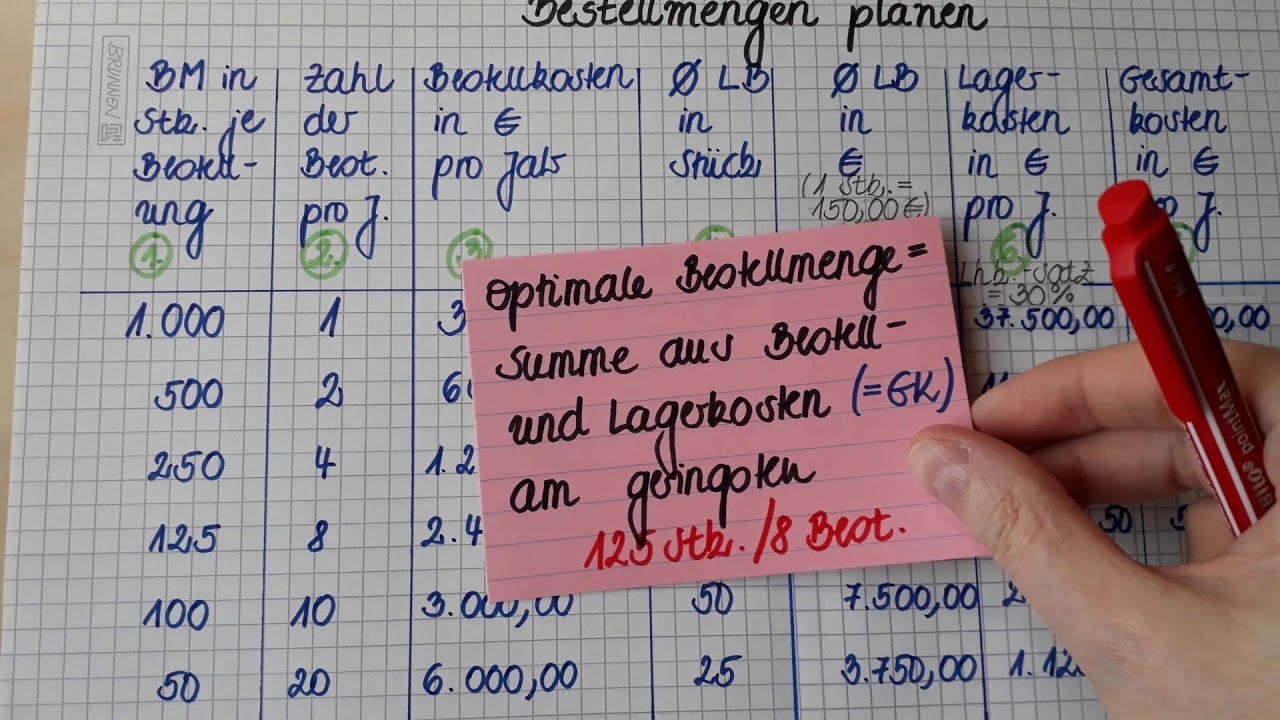 Bestellmengen planen
BRUNNEN
BM in
Stk. je
Bestell-
ung
1.
Zahl
der
Best.
pro J.
2.
Bestellkosten
in €
pro Jahr
3.
Ø LB
in
Stück
Ø LB
in
€
(1 Stk. =
150,00 €)
Lager-
kosten
in €
pro J.
6.
Lhk.-satz
= 30%
Gesamt-
kosten
in €
J.
1.000 1 3 37.500,00 0,00
500 2 6
250 4 1.2
125 8 2.4 50
100 10 3.000,00 50 7.500,00 2
50 20 6.000,00 25 3.750,00 1.12
Optimale Bestellmenge =
Summe aus Bestell-
und Lagerkosten (=GK)
am geringsten
125 Stk. /8 Best.
BIC® pointMax